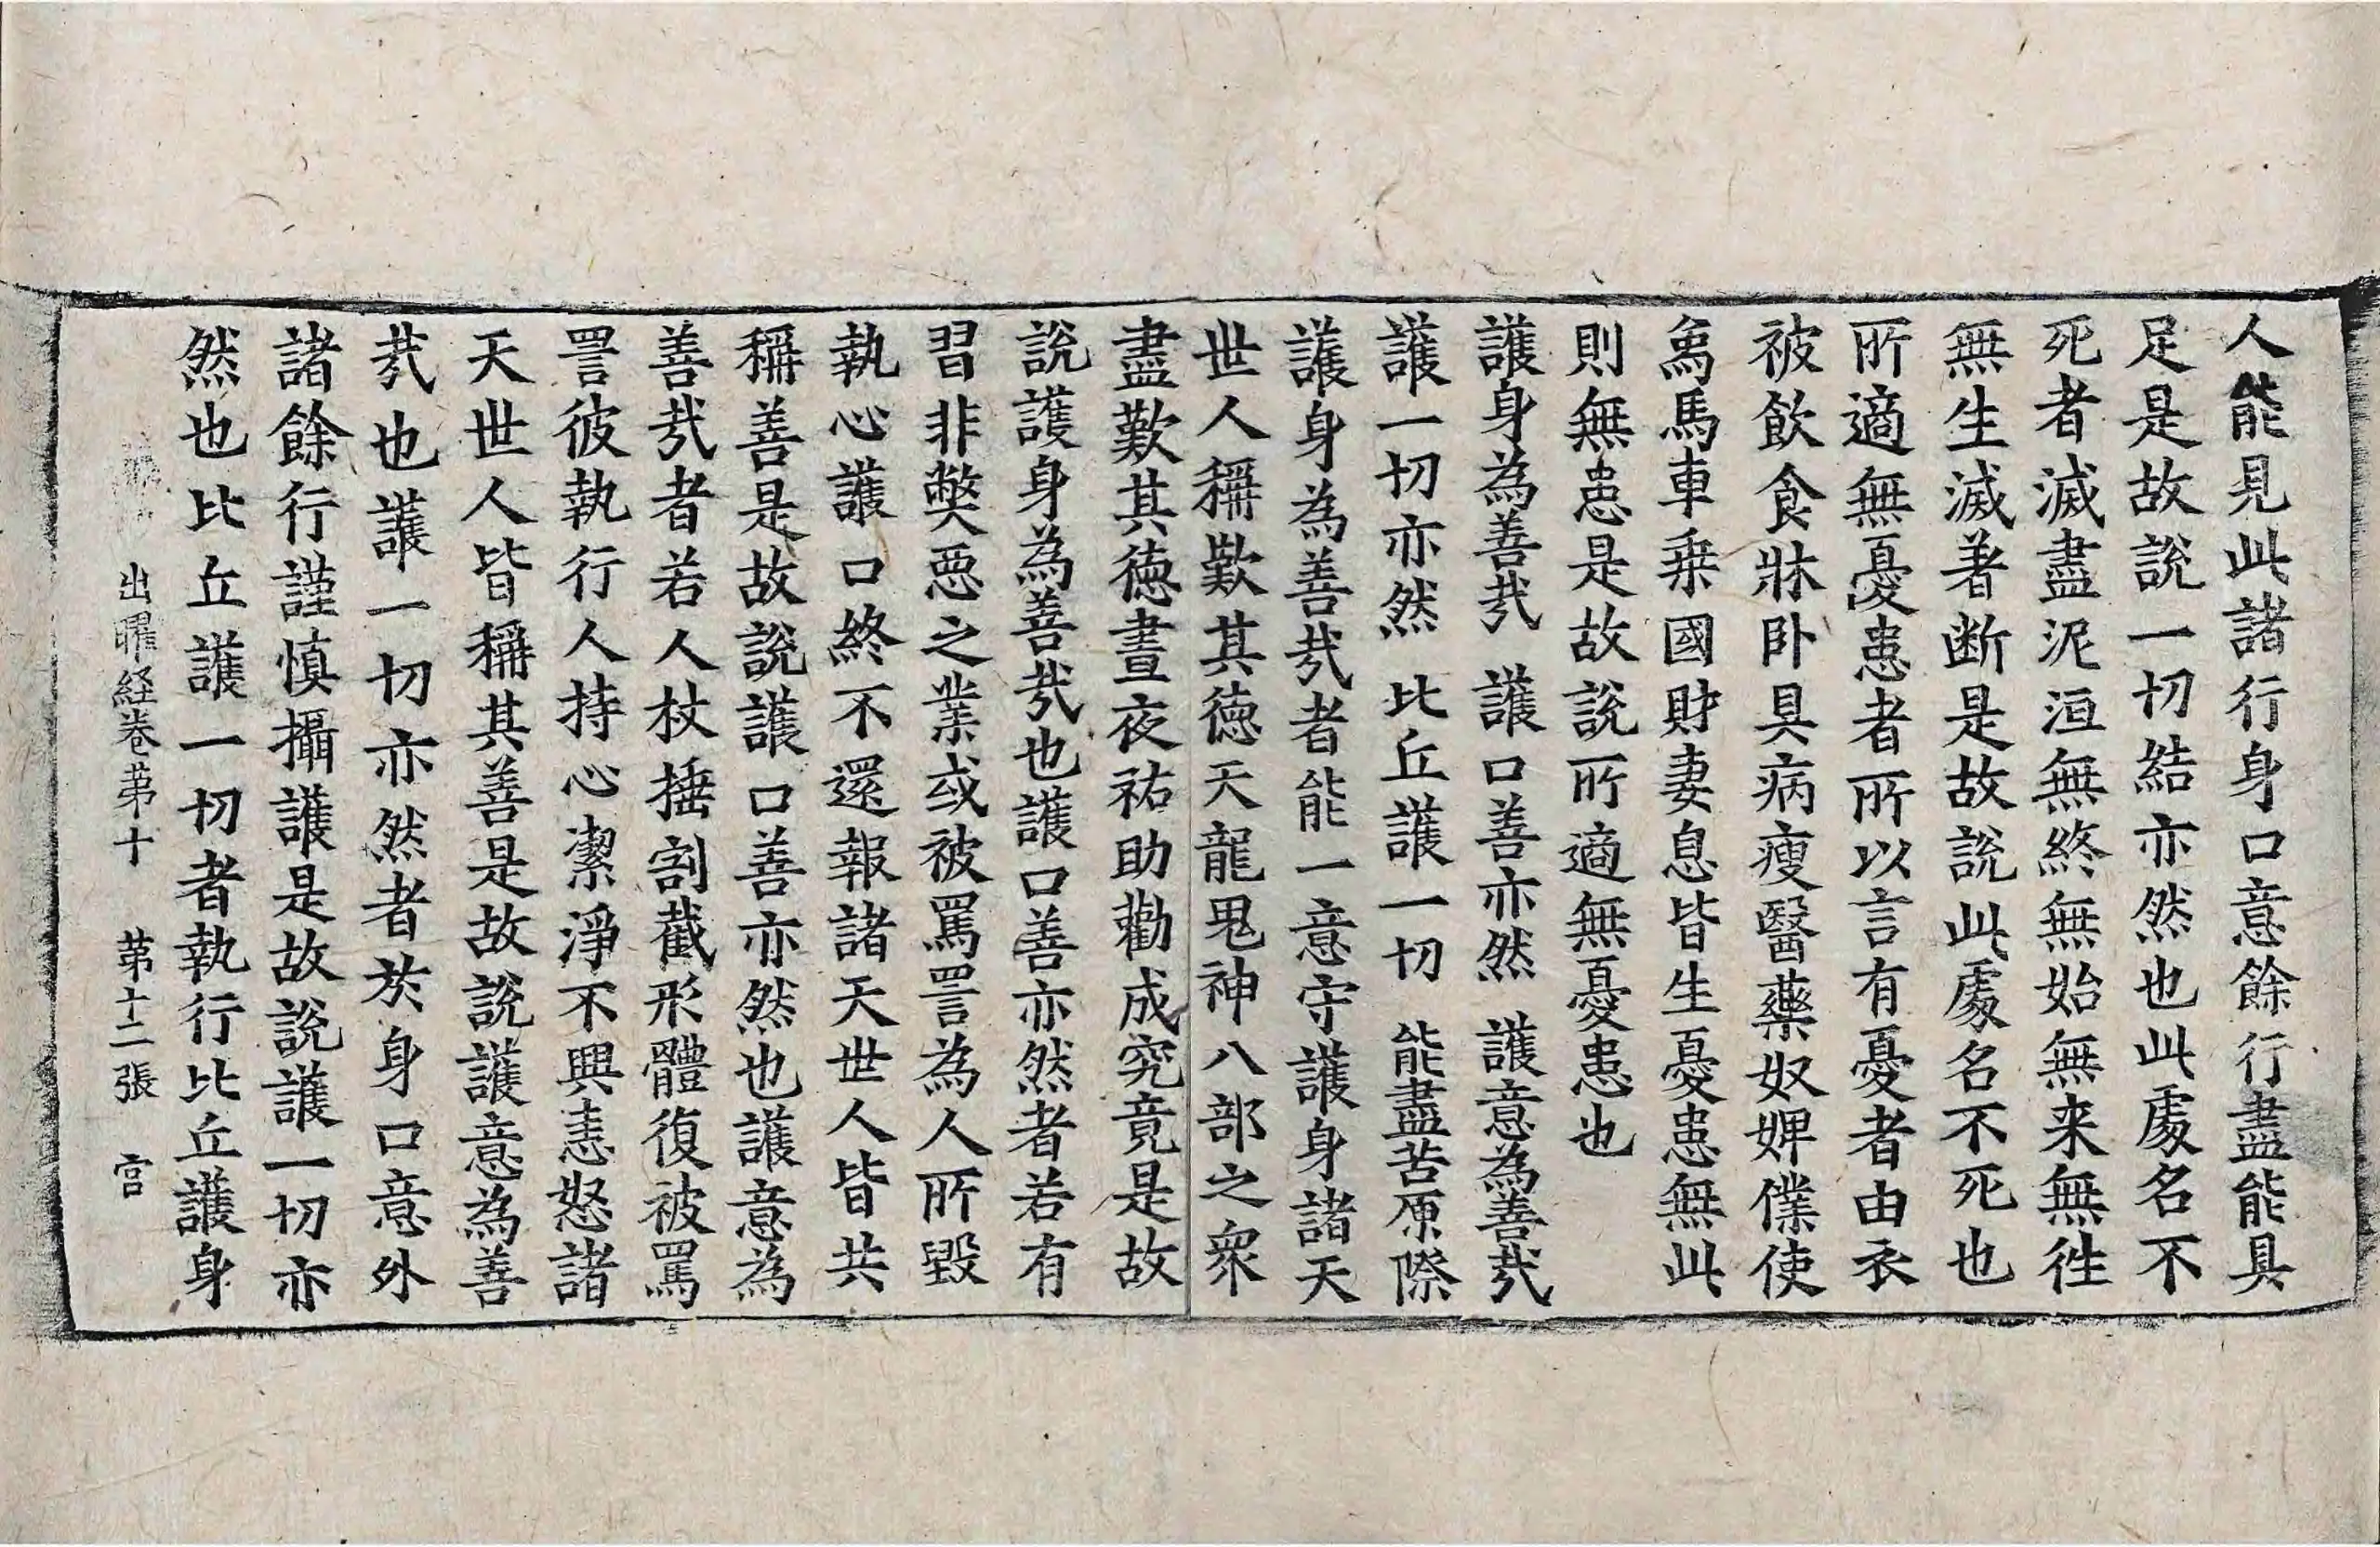 人能見此諸行身口意餘行盡能具
足是故說一切結亦然也此處名不
死者滅盡泥洹無終無始無来無徃
無生滅著断是故說此處名不死也
所適無憂患者所以言有憂者由衣
被飲食牀卧具病瘦醫藥奴婢僕使
象馬車乗國財妻息皆生憂患無此
則無患是故說所適無憂患也
護身為善㢤　護口善亦然　護意為善㢤
護一切亦然　比丘護一切　能盡苦原際
護身為善㢤者能一意守護身諸天
世人稱歎其徳天龍鬼神八部之衆
盡歎其徳晝夜祐助勸成究竟是故
說護身為善㢤也護口善亦然者若有
習非獘惡之業或被罵詈為人所毀
執心護口終不還報諸天世人皆共
稱善是故說護口善亦然也護意為
善㢤者若人杖捶割截形體復被罵
詈彼執行人持心潔淨不興恚怒諸
天世人皆稱其善是故說護意為善
㢤也護一切亦然者於身口意外
諸餘行謹慎攝護是故說護一切亦
然也比丘護一切者執行比丘護身
出曜経卷苐十　苐十二張　宫